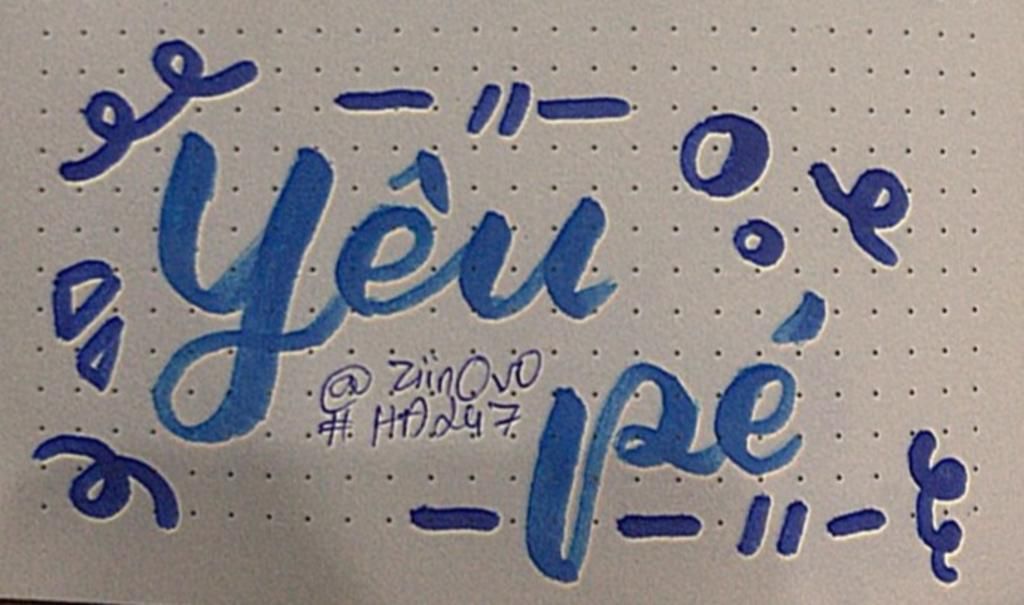 yều
@ ZiinOvO
# HA247
pé